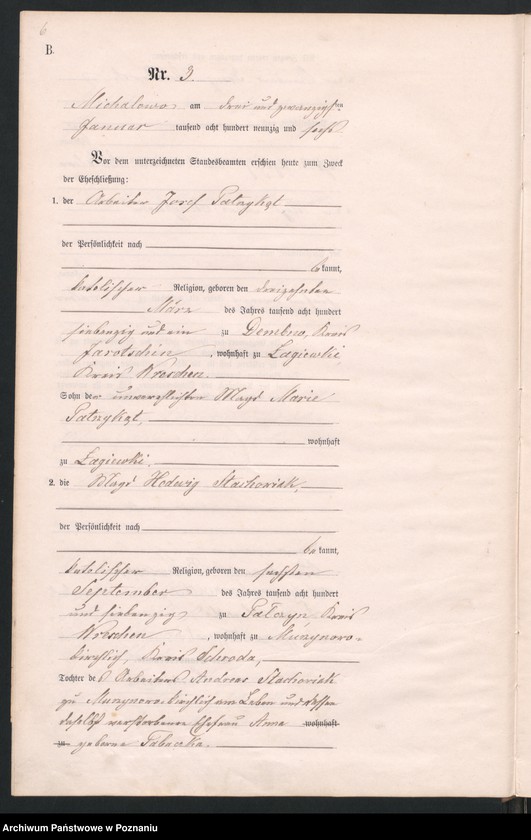 6
B.
Nr. 3.
Michalowo am drei und zwanzigsten
Januar tausend acht hundert neunzig und sechs
Vor dem unterzeichneten Standesbeamten erschien heute zum Zweck
der Eheschließung:
1. der Arbeiter Josef
der Persönlichkeit nach
be kannt,
katolischer Religion, geboren den dreizehnten
März des Jahres tausend acht hundert
siebenzig und ein zu Dembno, Kreis
Jarotschin, wohnhaft zu Lagiewki,
Kreis Wreschen.
Sohn der unverehlichten Magd Marie
wohnhaft
zu Lagiewki.
2. die Magd Hedwig Stachowiak,
der Persönlichkeit nach
be kannt,
katolischer Religion, geboren den sechsten
September des Jahres tausend acht hundert
und siebenzig zu Palczyn, Kreis
Wreschen, wohnhaft zu
kirchlich, Kreis Schroda,
Tochter des Arbeiters Andreas Stachowiak
zu kirchlich am Leben und dessen
daselbst verstorbenen Ehefrau Anna wohnhaft
zu geborene
Archiwum Państwowe w Poznaniu